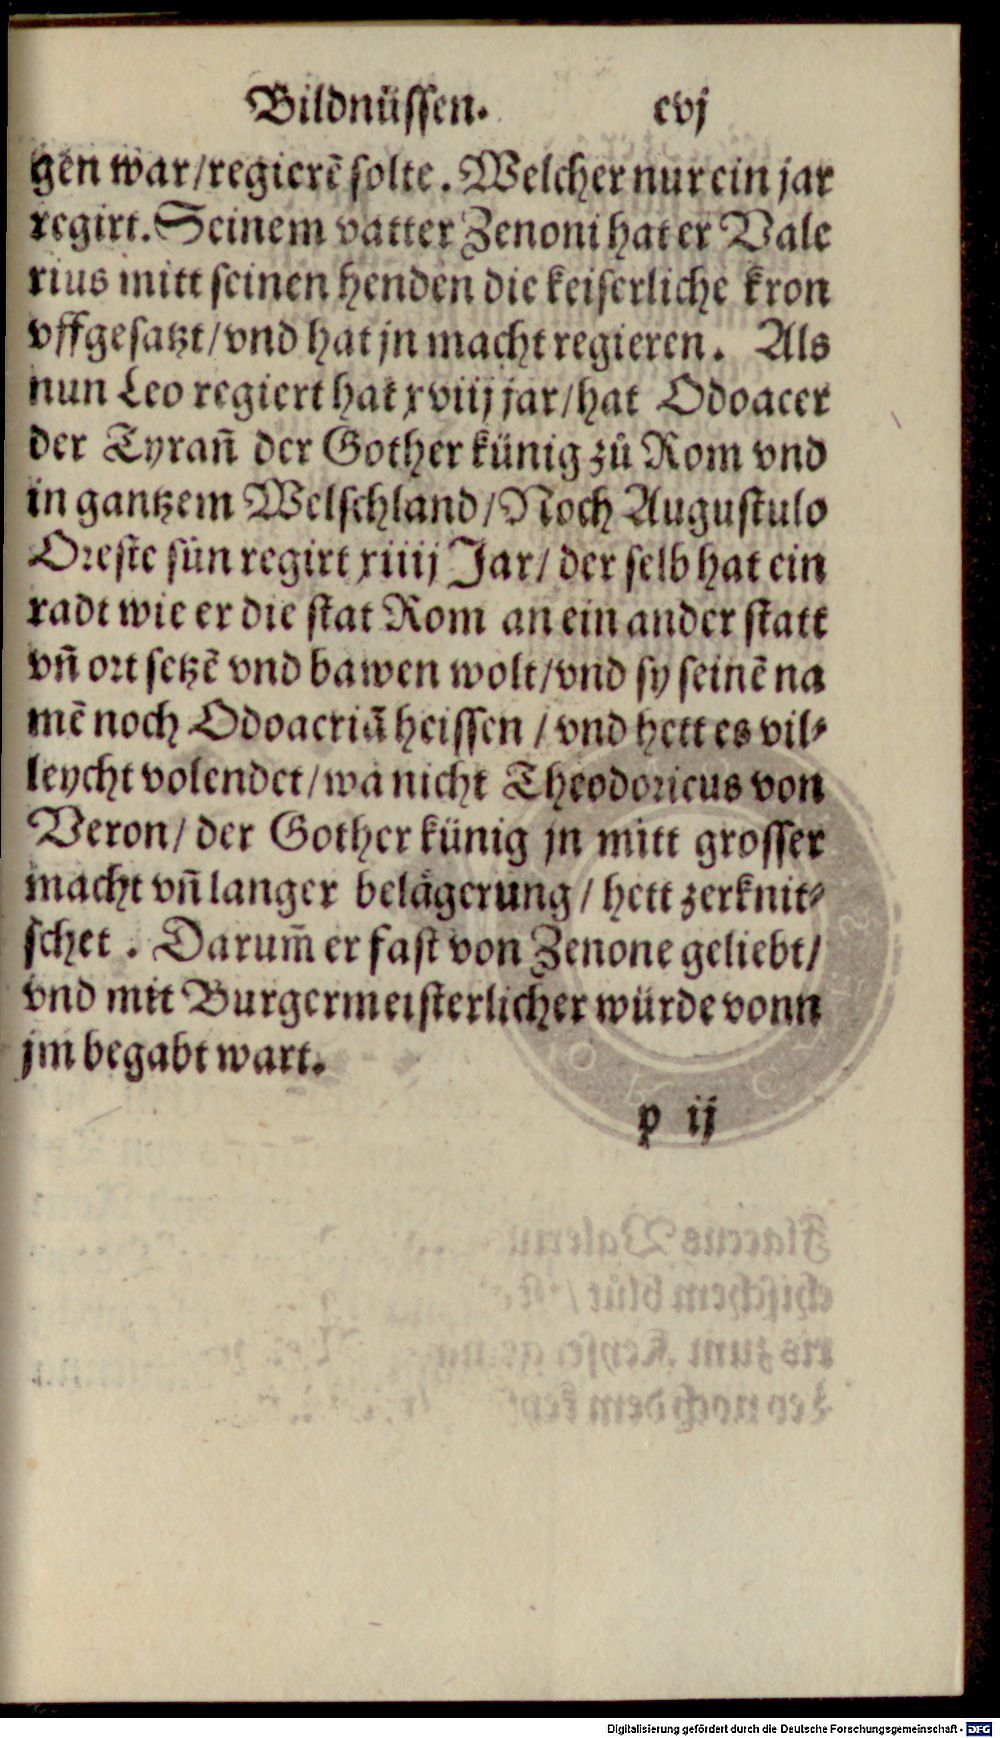 Bildnüssen. cvj
gen war/regierē solte. Welcher nur ein jar
regirt. Seinem vatter Zenoni hat er Vale
rius mitt seinen henden die keiserliche kron
vffgesatzt/vnd hat jn macht regieren. Als
nun Leo regiert hat xviij jar/hat Odoacer
der Tyrañ der Gother künig zů Rom vnd
in gantzem Welschland/Noch Augustulo
Oreste sün regirt xiiij Jar/der selb hat ein
radt wie er die stat Rom an ein ander statt
vñ ort setzē vnd bawen wolt/vnd sy seinē na
mē noch Odoacriā heissen/vnd hett es vil⸗
leycht volendet/wa nicht Theodoricus von
Veron/der Gother künig jn mitt grosser
macht vñ langer belägerung/hett zerknit⸗
schet. Darum̄ er fast von Zenone geliebt/
vnd mit Burgermeisterlicher würde vonn
jm begabt wart.
p ij
Digitalisierung gefördert durch die Deutsche Forschungsgemeinschaft - DFG